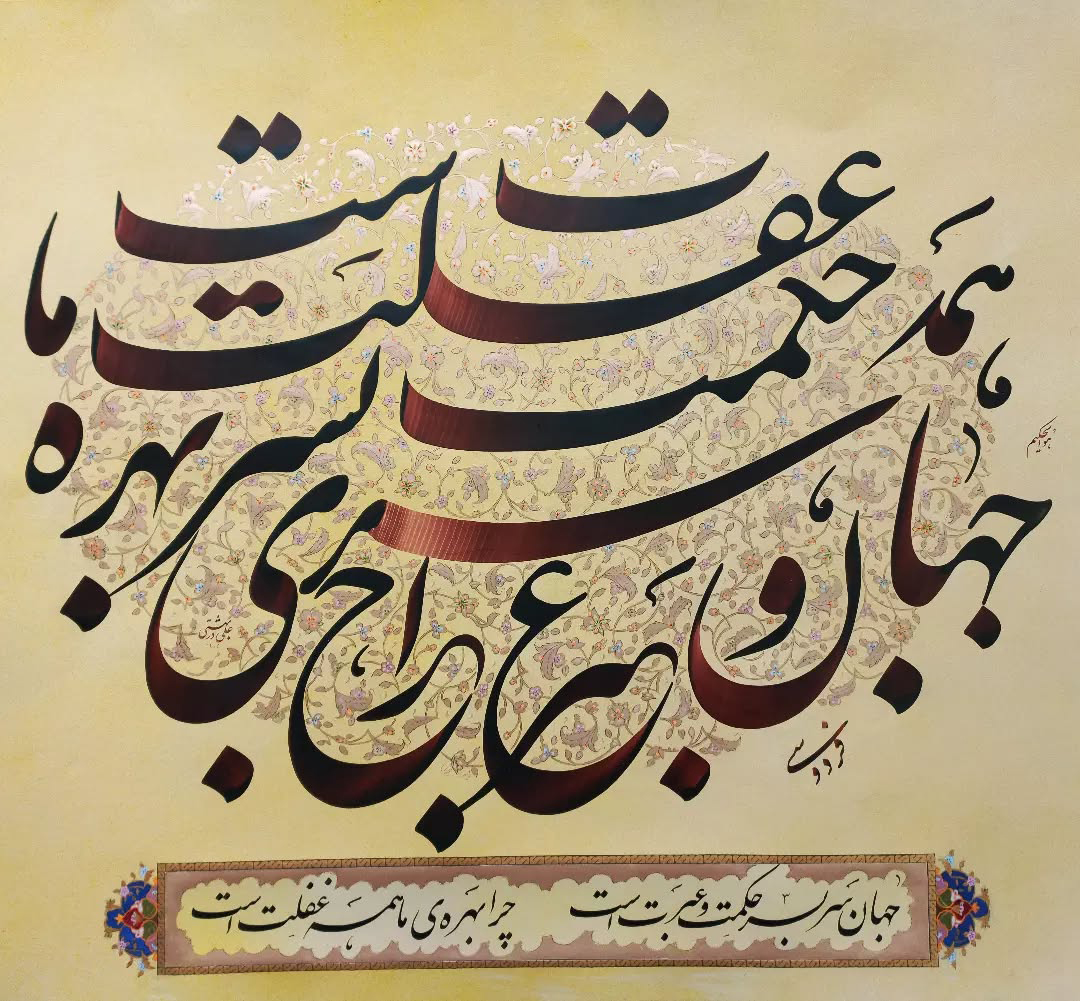 جهان سر بسر حکمت و عبرت است
چرا بهره‌ی ما همه غفلت است
هوالحکیم
فردوسی
جهان سر بسر حکمت و عبرت است چرا بهره‌ی ما همه غفلت است